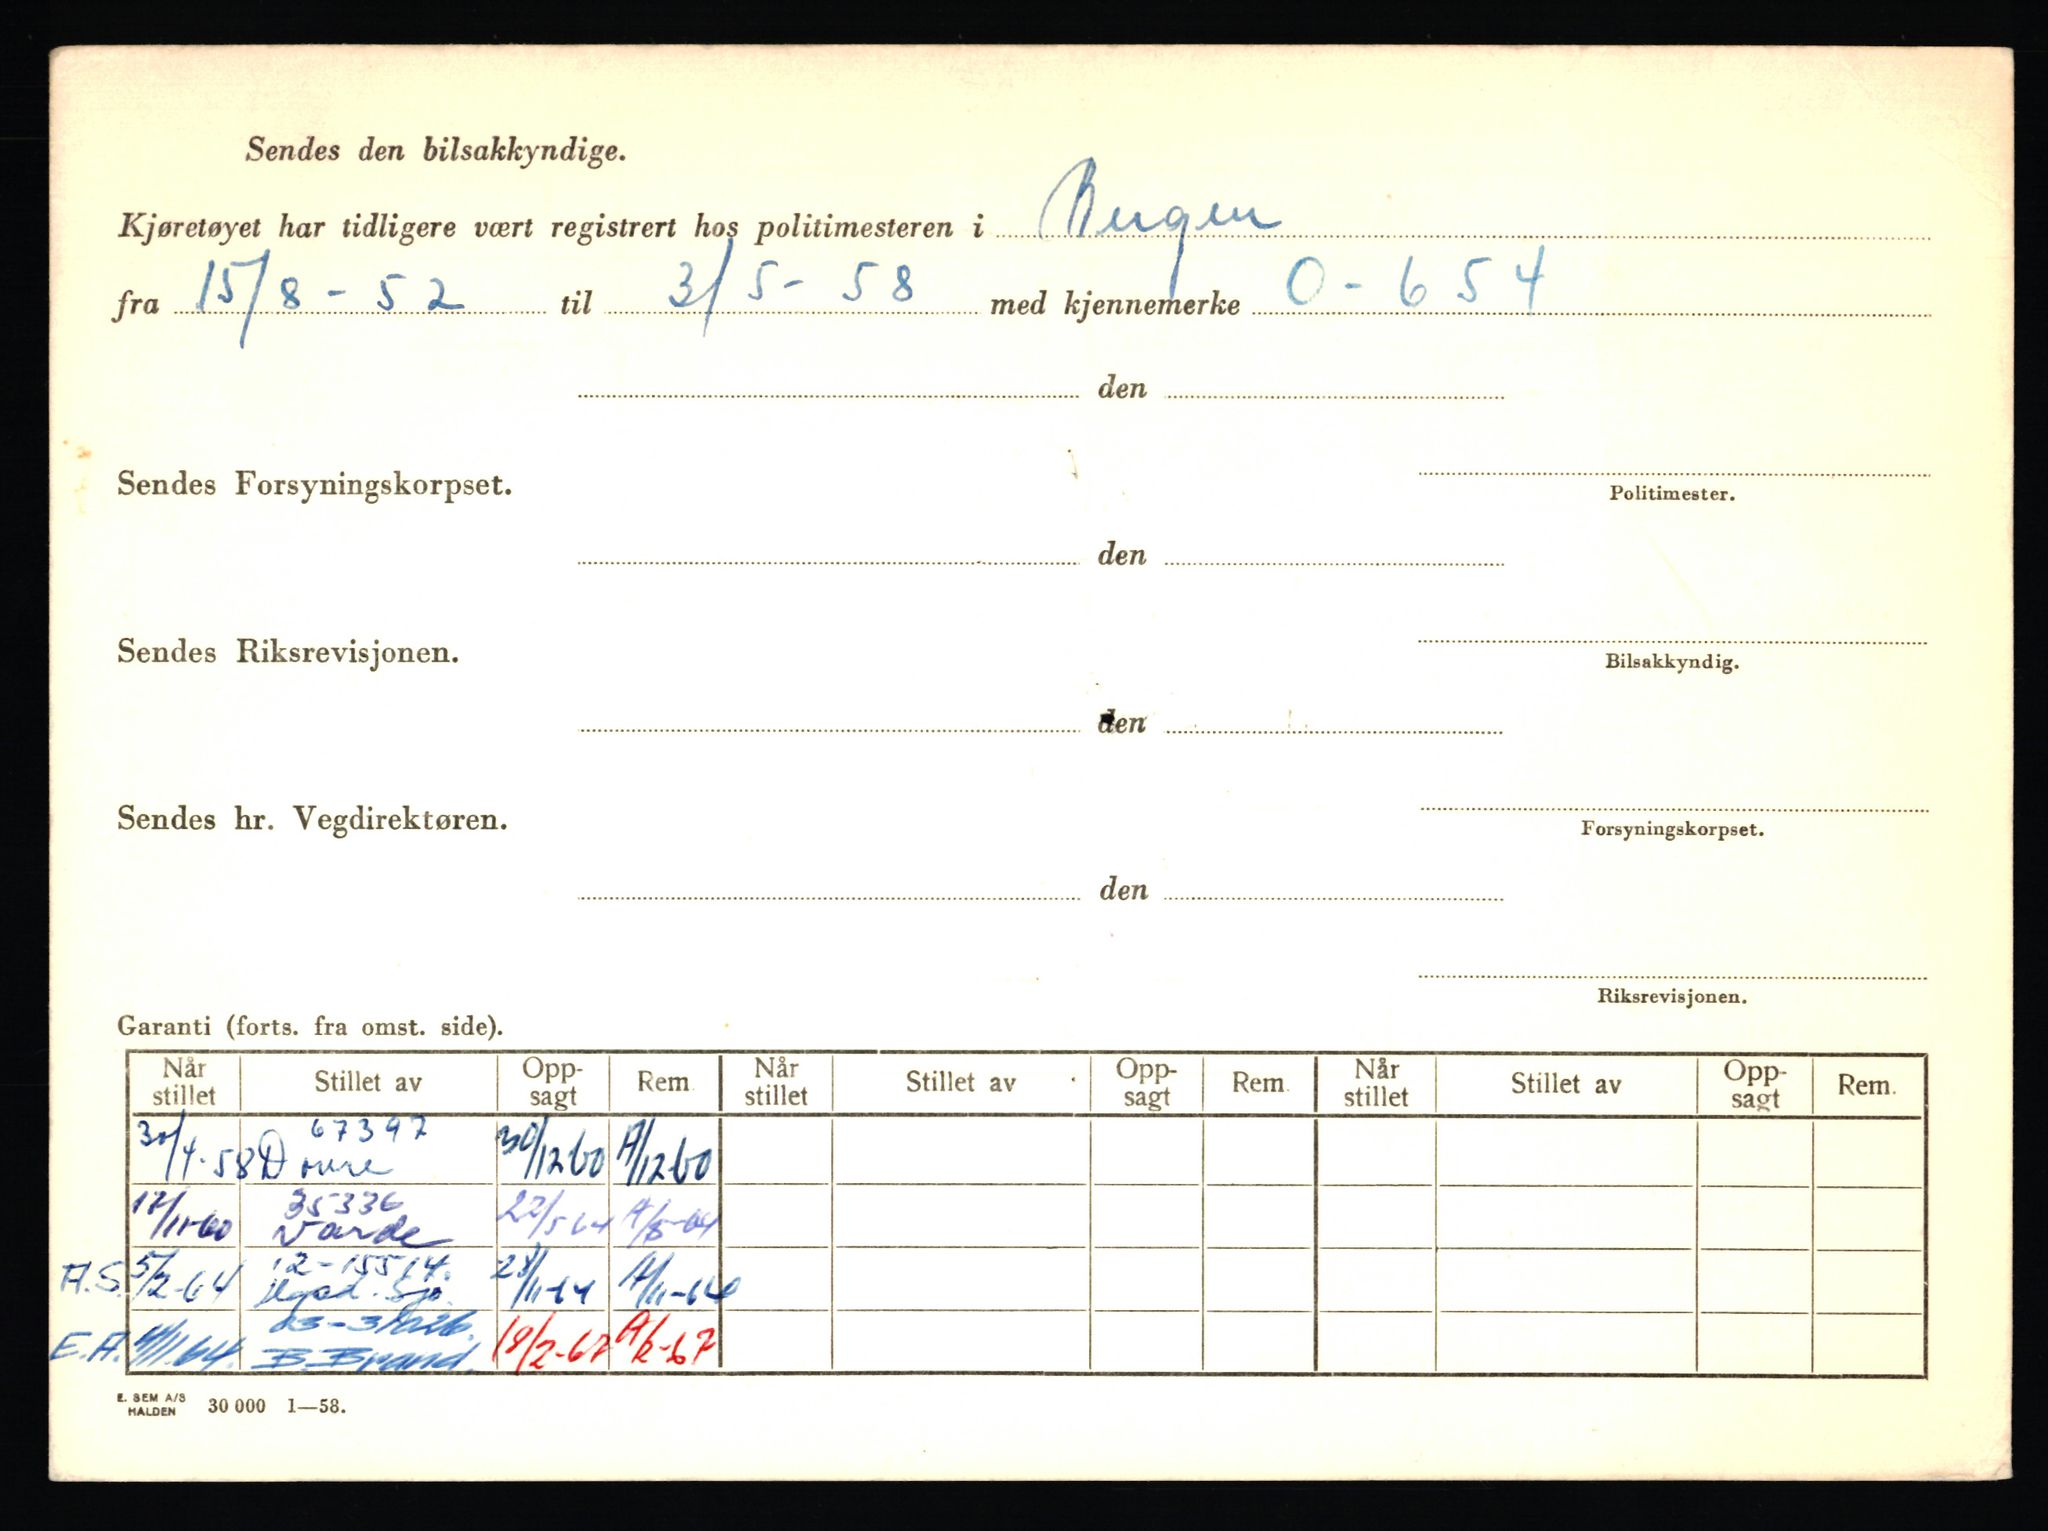 Sendes den bilsakkyndige.
Kjøretøyet har tidligere vært registrert hos politimesteren i Bergen
fra 15/8-52 til 3/5-58 med kjennemerke O-654
den
Sendes Forsyningskorpset.
Politimester.
den
Sendes Riksrevisjonen.
Bilsakkyndig.
den
Sendes hr. Vegdirektøren.
Forsyningskorpset.
den
Riksrevisjonen.
Garanti (forts. fra omst. side).
Når stillet Stillet av Opp-sagt Rem. Når stillet Stillet av Opp-sagt Rem. Når stillet Stillet av Opp-sagt Rem.
67397
30/4-58 Dovre 30/12-60 A/12-60
35336
17/11-60 Varde 22/5-64 A/5-64
12-15514.
A.S. 5/2-64 Sjø. 28/11-64 A/11-64
E.A. B. Brand. 18/2-67 A/2-67
E. SEM A/S
HALDEN 30 000 1—58.